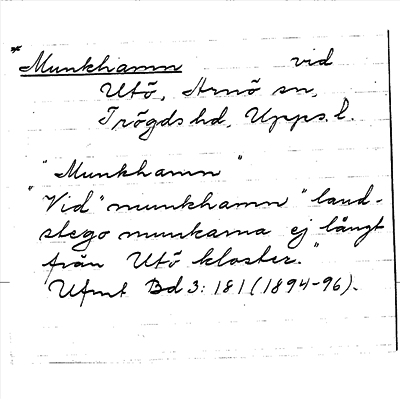 *Munkhamn vid
Utö, Arnö sn,
Trögds hd, Upps. l.
"Munkhamn"
"Vid "munkhamn" land-
stego munkarna ej långt
från Utö kloster."
Ufmt Bd 3: 181 (1894-96).